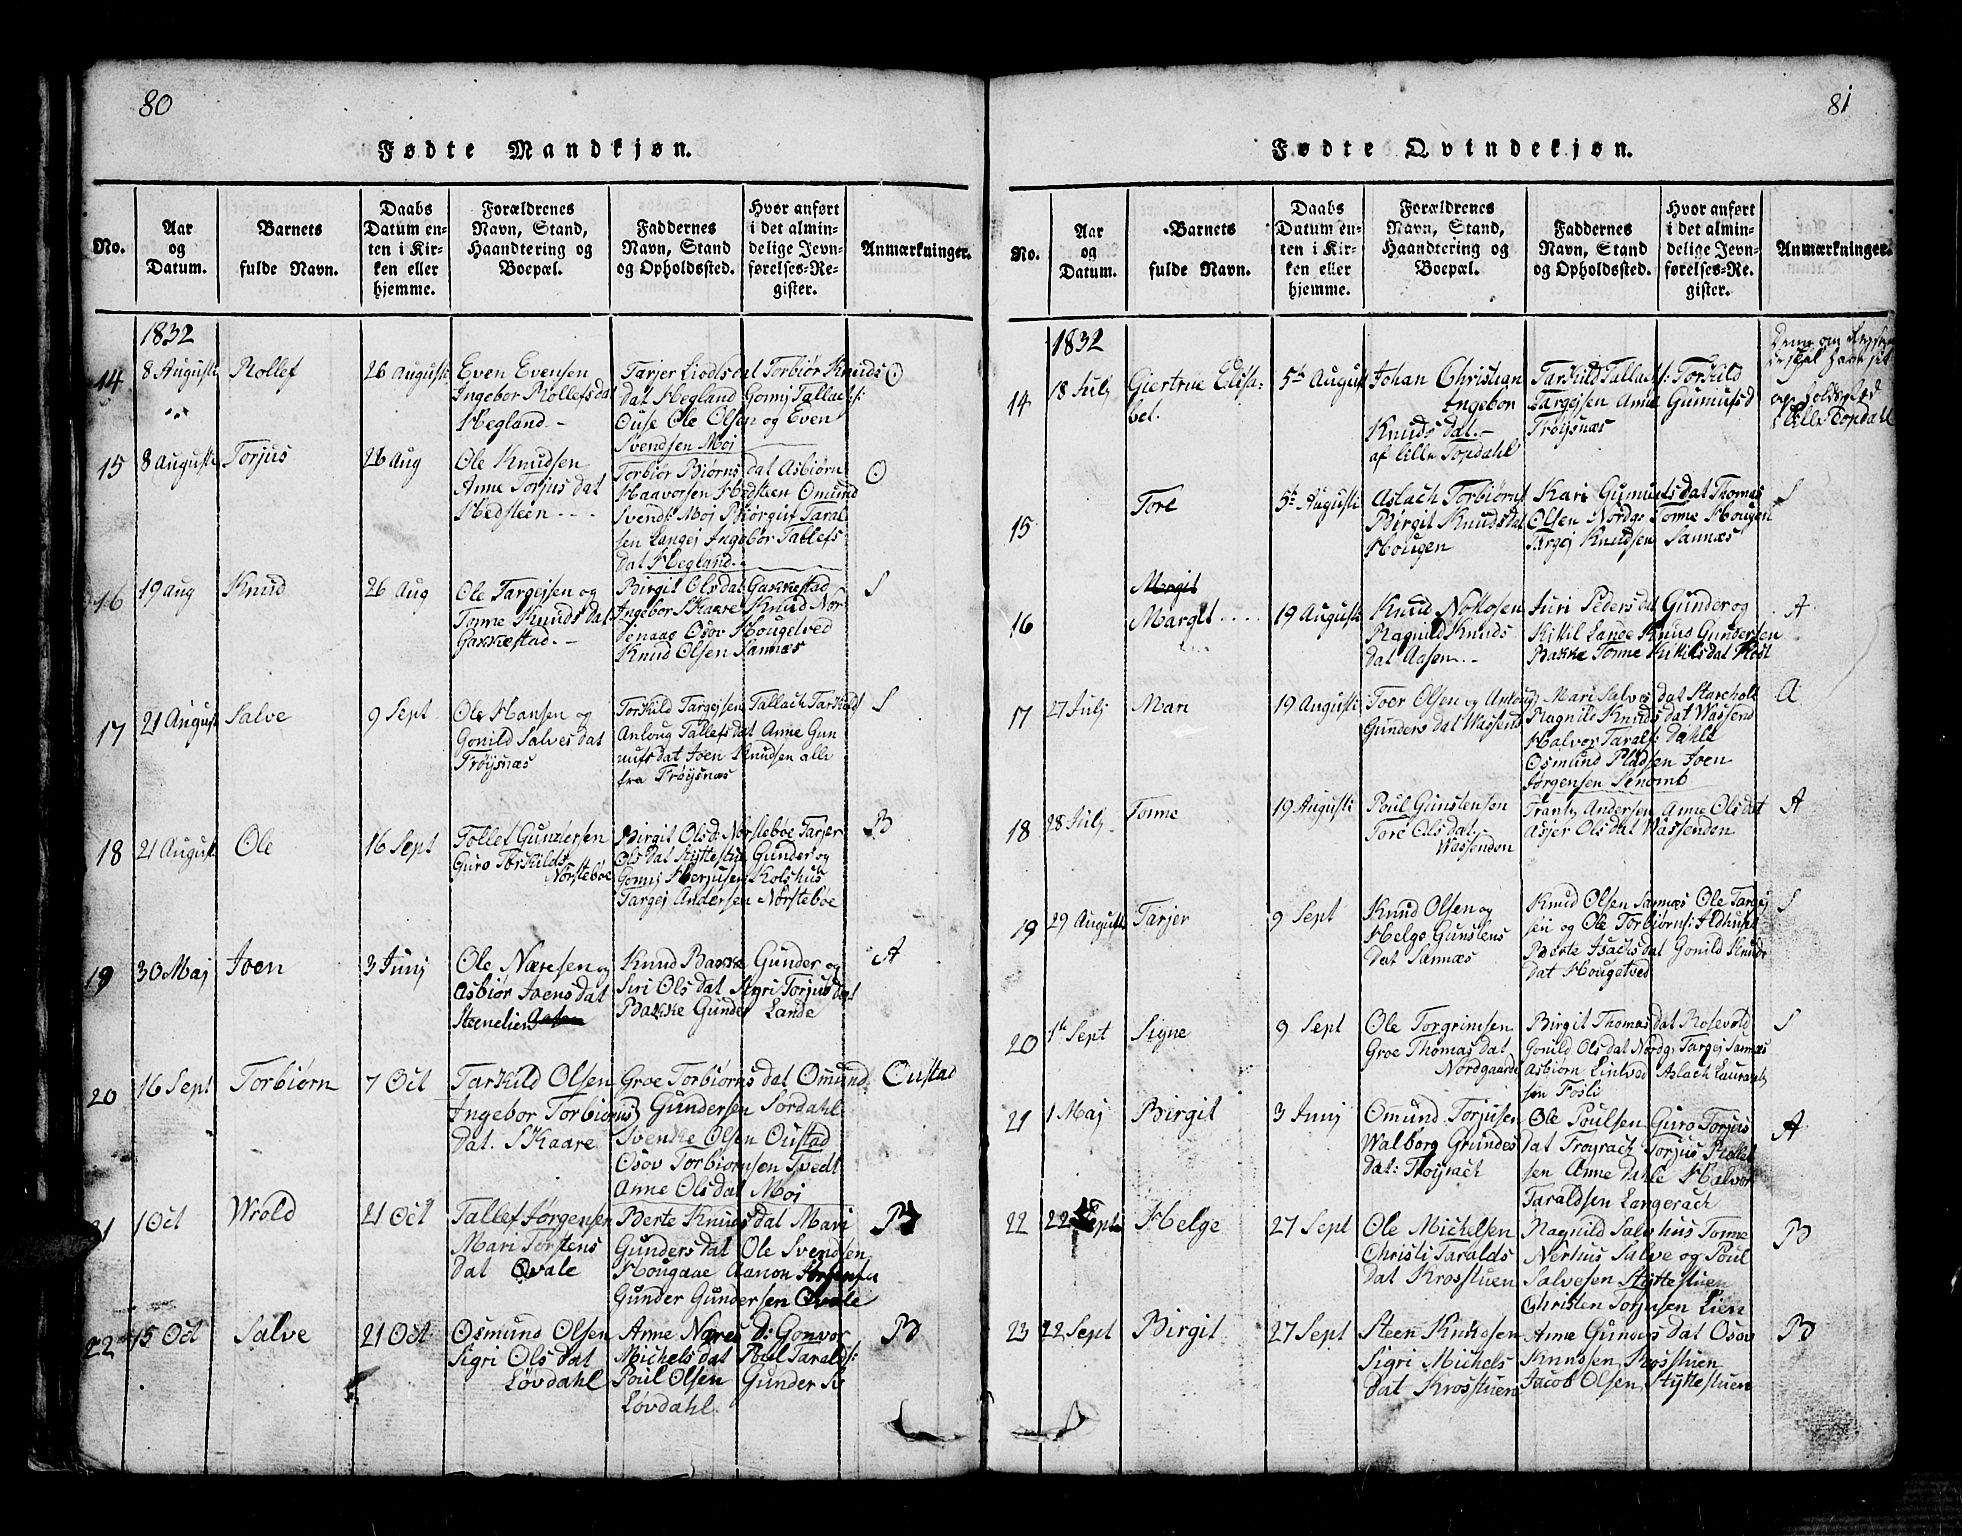 80
Fødte Mandkjøn.
No.
Aar
og
Datum.
Barnets
fulde Navn.
Daabs
Datum en-
ten i Kir-
ken eller
hjemme.
Forældrenes
Navn, Stand,
Haandtering og
Boepæl.
Faddernes
Navn, Stand
og Opholdssted.
Hvor anført
i det almin-
delige Jevn-
førelses-Re-
gister.
Anmærkninger.
1832
14
8 Augusti
Rollef
26 Augusti
Even Evensen
Ingebor Rollefsdat
Hegland -
Tarjer Liodsdat Torbiør Knuds
dat Hegland Gonnj Tallacs:
Ouse Ole Olsen og Even
Svendsen Moj
O
15
8 Augusti
Torjus
26 Aug
Ole Knudsen
Anne Torjus dat
Hedsteen
Torbiør Biørns dat Asbiørn
Haavorsen Hedsteen Omund
Svends: Moj Biørgit Taral
sen Langej Ingebor Tallefs
dat Hegland
O
16
19 aug
Knud
26 Aug
Ole Targejsen og
Tonne Knuds dat
Gakkestad. -
Birgit Olsdat Gakkestad
Ingebor Skaare Knud Nor
Osov Hougetved
Knud Olsen Sannæs
S
17
21 August
Salve
9 Sept
Ole Hansen og
Gonild Salves dat
Trøjsnæs
Torkild Targejsen Tallach Tarkild
Anloug Tallefsdat Anne Gun
nufsdat Joen Knudsen alle
fra Trøjsnæs
S
18
21 August
Ole
16 Sept
Tollef Gundersen
Guro Torkilds
Nørstebøe
Birgit Olsd: Nørstebøe Tarjer
Olsdat Støttestu Gunder og
Gonnj Herjusen Kolshus
Targej Andersen Nørstebøe
B
19
30 Maj
Joen
3 Junj
Ole Næresen og
Asbiør Joens dat
Steenelien
Knud Bakke Gunder og
Siri Ols dat Sigri Torjus dat
Bakke Gunder Lande
A
20
16 Sept
Torbiørn
7 Oct
Tarkild Olsen
Ingebor Torbiorns
dat. Skaare
Groe Torbiørns dat Omund
Gundersen Sordahl
Svenke Olsen Oustad
Osov Torbiornsen Tvedt
Anne Olsdat Moj
Oustad
21
1 Oct
Wrold
21 Oct
Tallef Jørgensen
Mari Torstens
dat Qvale
Berte Knuds dat Mari
Gundersdat Ole Svendsen
Hougaae Aanon
Gunder Gundersen Qvale
B
22
15 Oct
Salve
21 Oct
Osmund Olsen
Sigri Ols dat
Løvdahl
Anne Næres d: Gonvor
Michelsdat Poul Taralds:
Poul Olsen Gunder
Løvdahl
B
81
Fødte Qvindekjøn.
No.
Aar
og
Datum.
Barnets
fulde Navn.
Daabs
Datum en-
ten i Kir-
ken eller
hjemme.
Forældrenes
Navn, Stand,
Haandtering og
Boepæl.
Faddernes
Navn, Stand
og Opholdssted.
Hvor anført
i det almin-
delige Jevn-
førelses-Re-
gister.
Anmærkninger.
1832
14
18 Julj
Giertrue Elisa:
bet.
5th August
Johan Christian
Ingebor
Knuds dat. -
af Lille Topdahl
Tarkild Tallachs: Torkild
Targejsen Anne Gunnufsd
Trøjsnæs
Lille Topdahl
15
Tore
5th Augusti
Aslach Torbiørns
Birgit Knudsdat
Hougen
Kari Gunnufsdat Thomas
Olsen Nordg: Tonne Hougen
Targej Knudsen Sannæs
S
16
Margit
Margit
19 Augusti
Knud Nottosen
Ragnild Knuds
dat Aasen
Juri Peders dat Gunder og
Kittil Lande Knud Gundersen
Bakke Tonne Kittilsdat
A
17
27 Julj
Mari
19 Augusti
Toer Olsen og Anloug
Gunders dat Wassend
Mari Salves dat Stareholt
Ragnild Knudsdat Wassend
Halvor Taralfs: Dahle
Osmund Pladsen Joen
Jørgensen
A
18
28 Julj
Tonne
19 Augusti
Poul Gunstenson
Tore Olsdat
Wassenden
Frants Andersen Anne Olsdat
Asjer Olsdat Wassenden
A
19
29 Augusti
Tarjer
9 Sept
Knud Olsen og
Helge Gunstens
dat Sannæs
Knud Olsen Sannæs Ole Targej
sen og Ole Torbiørns: Ildhuset
Berte Isachsdat Gonild Knuds
dat Hougetved
S
20
1th Sept
Signe
9 Sept
Ole Torgrimsen
Groe Thomas dat
Nordgaarde
Birgit Thomas dat Rosevold
Gonild Olsdat Nordg: Targej Sannæs
Asbiørn Lintved Aslach Laurants
sen Fosli
S
21
1 Maj
Birgit
3 Junj
Omund Torjusen
Walborg Grundes
dat: Trøjrach
Ole Poulsen Guro Torjus
dat Trøjrach Torjus Rollef
sen Anne Dahle Halvor
Taraldsen Langerach
A
22
22 Sept
Helge
27 Sept
Ole Michelsen
Christi Taralds
dat Krosstuen
Ragnild Salvhus Tonne
Nerhus Salve og Poul
Salvesen Støttestuen
Christen Torjusen Lien
B
23
22 Sept
Birgit
27 Sept
Steen Knudsen
Sigri Michels
dat Krosstuen
Anne Gunders dat Osov
Knudsen Krosstuen
Jacob Olsen Støttestuen
B